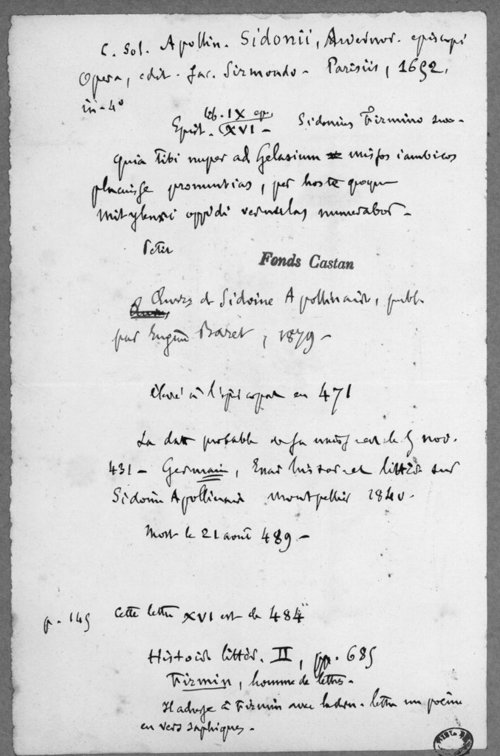 C. Sol. Apollin. Sidonii, Arvernor. episcopi
Opera, edit. Jac. Sirmondo. Parisiis, 1652,
in-4°
lib. IX ep.
Epist. XVI - Sidonius Firmino suo -
quia tibi nuper ad Gelasium missos iambicos
placuisse pronuntias, per hos te quoque
Mitylenaei oppidi vernulas numerabor -
Peter
Fonds Castan
Œuvres de Sidoine Apollinaire, publ.
par Eugène Baret, 1879 -
élevé à l'épiscopat en 471
La date probable de sa naiss. est le 5 nov.
431 - Germain, Essai histor. et littér. sur
Sidoine Apollinaire Montpellier 1840.
Mort le 21 août 489 -
p. 145 Cette lettre XVI est de 484
Histoire littér. II, pp. 685
Firmin, homme de lettres -
Il adresse à Firmin avec la dern. lettre un poème
en vers saphiques.